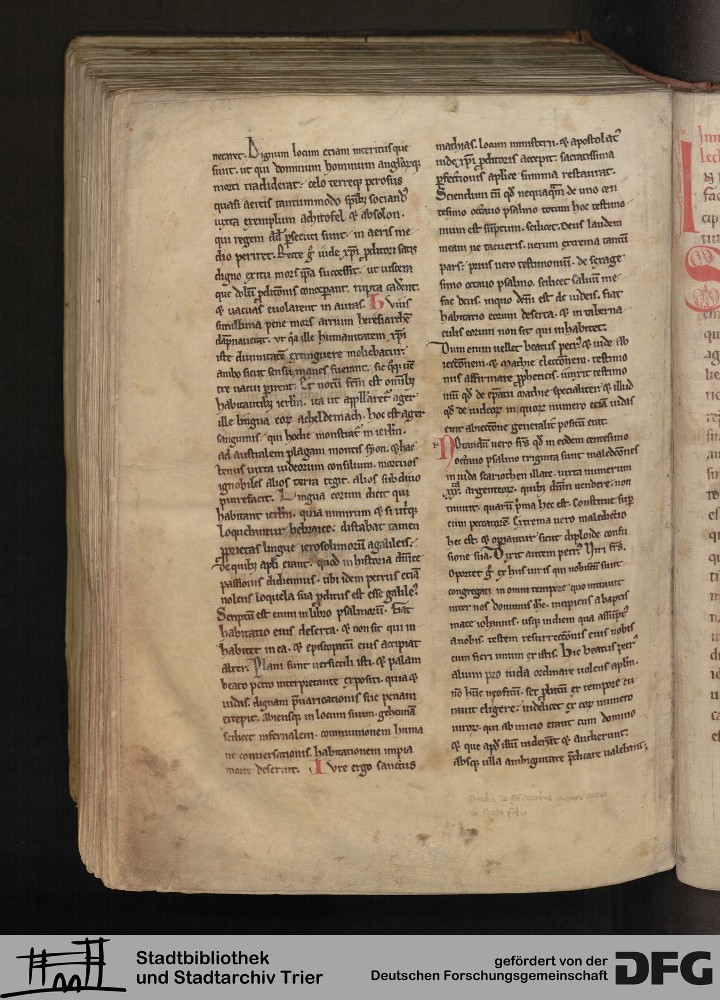 necaret. Dignum locum etiam interitus que
siunt. ut qui dominum hominum anglorꝗ
morti tradiderat. celo terreꝗ perosus
quasi aereis tantummodo spiritibꝫ sociandꝰ
iuxta exemplum achitofel & absolon.
qui regem dauid ꝑsecuti sunt. in aeris me
dio periret. Recte gͦ iude xp̄i ꝓditori satis
digno exitu mors ip̄a successit. ut uiscera
que dolū ꝓditionis conceperant. rupta caderent.
& uacuas euolarent in auras. Huius
simillima pene mors arrium heresiarchē
dāpnauerat. ut qͣ ille humanitatem xp̄i
iste diuinitatē extinguere moliebatur.
ambo sicut sensu manes fuerant. sic qͦꝗ uē
tre uacui ꝑirent. Et notū factū est omībꝫ
habitantibꝫ ierlm̄. ita ut appllaret᷑ ager
ille lingua eoꝝ acheldemach. hoc est ager
sanguinis. qui hodie monstrat᷑ in ierlm̄.
ad australem plagam montis syon. & hac
tenus iuxta iudeorum consilium. mortuos
ignobiles alios terra tegit. alios sub diuo
putrefacit. Lingua eorum dicit qui
habitant ierlm̄. quia nimirum & si utiꝗ
loquebantur hebraice. distabat tamen
ꝓprietas lingue ierosolimorū a galileis.
de quibꝫ apl̄i erant. quod in historia dn̄ice
passionis didicimus. ubi idem petrus etiā
nolens loquela sua ꝓditus est esse galileꝰ.
Scriptū est enim in libro psalmorū. Fiat
habitatio eius deserta. & non sit qui in
habitet in ea. & episcopatū eius accipiat
alter. Plani sunt uersiculi isti. & palam
beato petro interpretante expositi. quia &
iudas dignam p̄uaricationis sue penam
excepit. abiensꝗ in locum suum. gehennā
scilicet infernalem. communionem huma
ne conuersationis. habitationem impia
morte deseruit. Iure ergo sanctus
mathias. locum ministerii. & apostolat᷑
iude xp̄i ꝓditoris accepit. sacratissima
ꝑfectionis aplice summa restaurat.
Sciendum ē qd nequaqͣm de uno cen
tesimo octauo psalmo totum hoc testimo
nium est sūptum. scilicet. deus laudem
meam ne tacueris. uerum extrema tantū
pars. prius uero testimoniū. de sexage
simo octauo psalmo. scilicet saluū me
fac deus. in quo dictū est de iudeis. Fiat
habitatio eorum deserta. & in taberna
culis eorum non sit qui inhabitet.
Dum enim uellet beatus petrꝰ & iude ab
iectionem. & mathie electionem. testimo
niis affirmare ꝓpheticis. iunxit testimo
niū qd de ep̄atu mathie specialiter. & illud
qd de iudeoꝝ in quoꝝ numero etiā iudas
erat abiectione generalit᷑ positū erat.
Notandū uero fr̄s qd in eodem centesimo
octauo psalmo triginta sunt maledictiones
in iuda scariothen illate. iuxta numerum
xxx argenteoꝝ. quibꝫ dn̄m uendere. non
timuit. quarū p̄ma hec est. Constitue sup̄
eum peccatorē. Extrema uero maledictio
hec est. & operiantur sicut diploide confu
sione sua. Dixit autem petrꝰ. Viri fr̄s.
oportet gͦ ex his uiris qui nobiscū sunt
congregati in omni tempore quo intrauit
inter nos dominus ih̄c. incipiens a baptis
mate iohannis. usꝗ in diem qua assūptꝰ
a nobis. testem resurrectionis eius nobis
cum fieri unum ex istis. Hic beatus petrꝰ
alium pro iuda ordinare uolens apl̄m.
rauit eligere. uidelicet ex eoꝝ numero
uiroꝝ. qui ab inicio erant cum domino
& que apd illū uiderāt & audierunt.
absꝗ ulla ambiguitate p̄dicare ualebant.
Stadtbibliothek
und Stadtarchiv Trier
gefördert von der
Deutschen Forschungsgemeinschaft
DFG